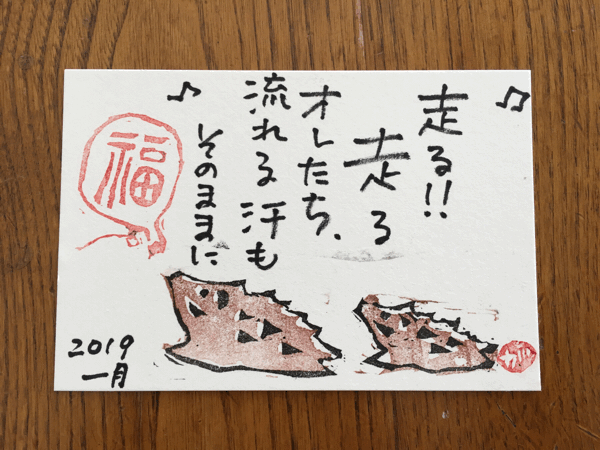 ♪
走る!!
走る
オレたち、
流れる汗も
そのままに
♪
福
2019
一月